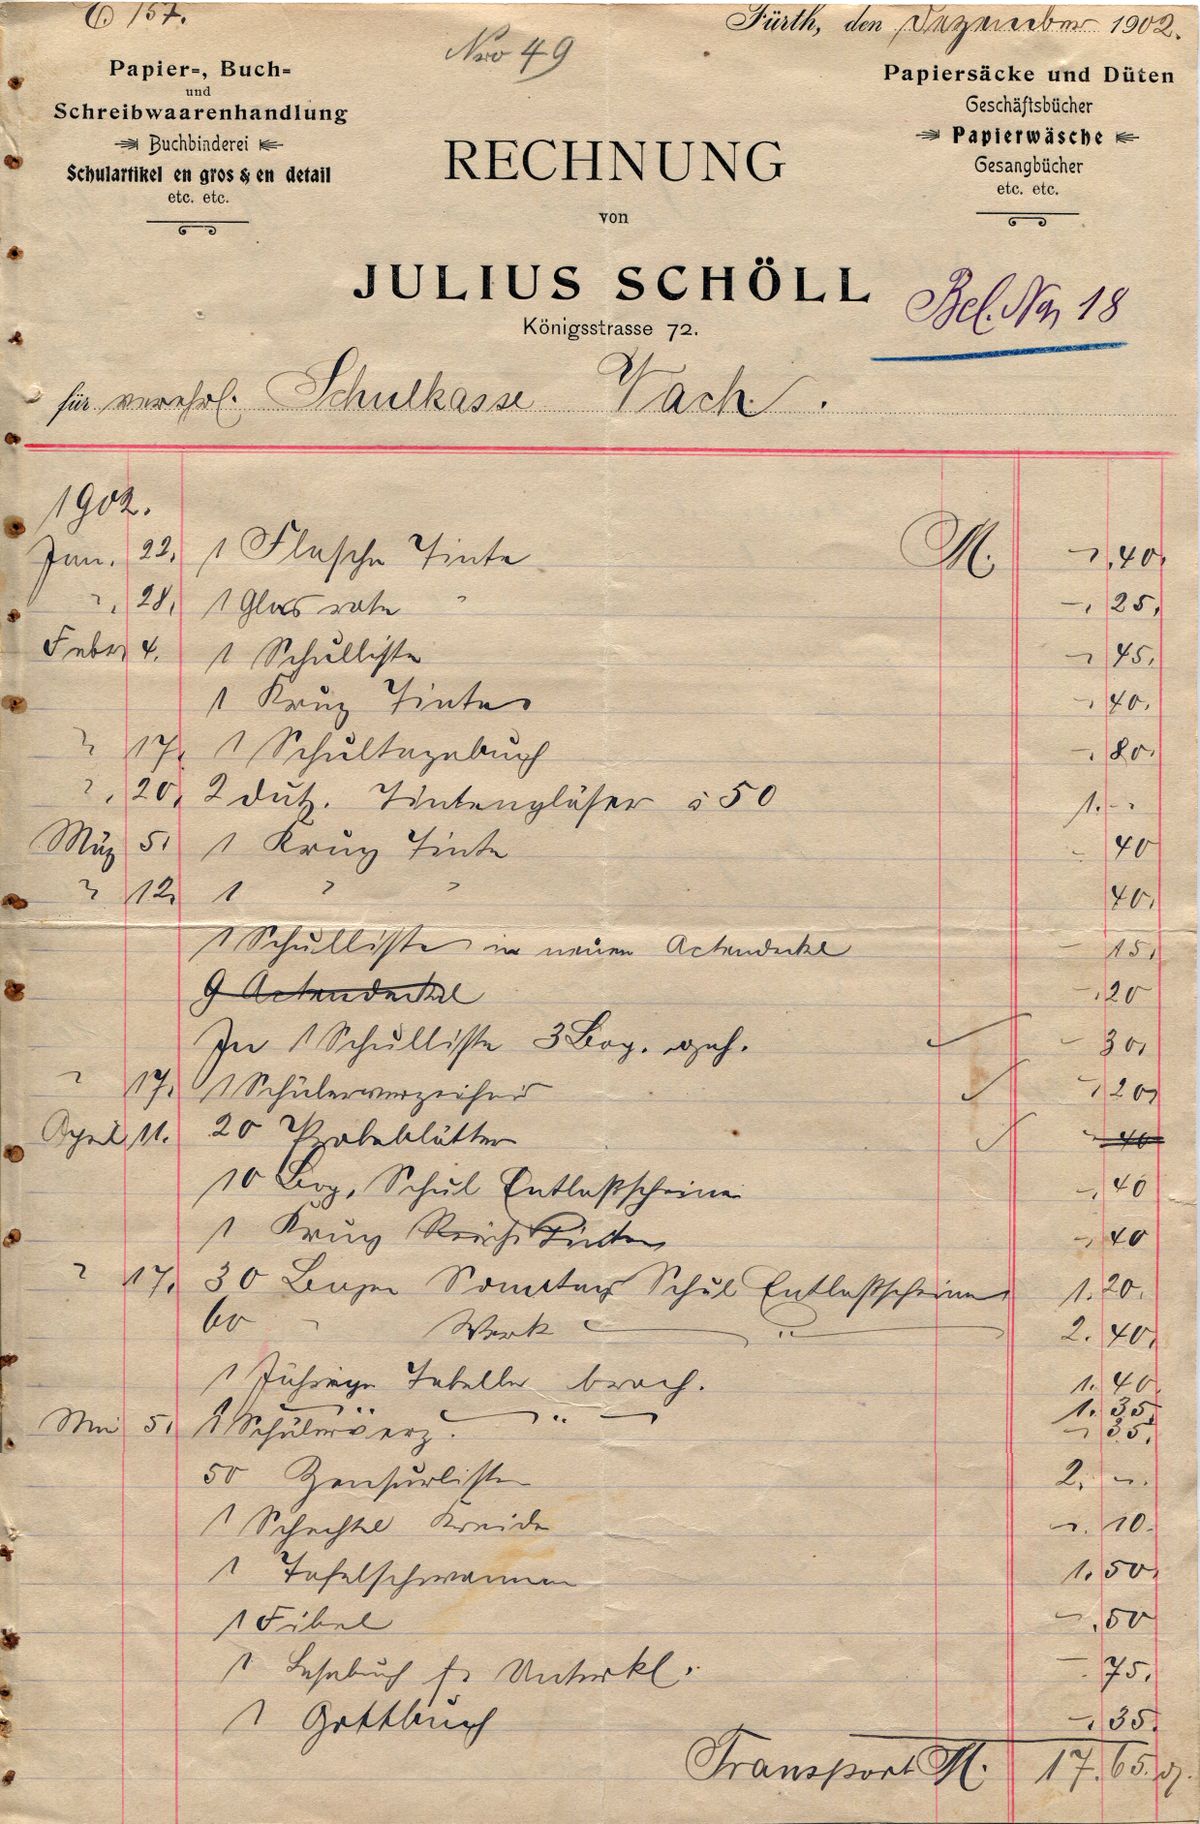 157.
Fürth, den Dezember 1902.
Nro 49
Papier-, Buch-
und
Schreibwaarenhandlung
Buchbinderei
Schulartikel en gros & en detail
etc. etc.
Papiersäcke und Düten
Geschäftsbücher
Papierwäsche
Gesangbücher
etc. etc.
RECHNUNG
von
JULIUS SCHÖLL
Königsstrasse 72.
Bel. No 18
für verehrl. Schulkasse Vach.
1902.
Jan. 22. 1 Flasche Tinte M. -.40.
". 28. 1 Glas rote " -. 25.
Febr. 4. 1 Schulliste - 45.
1 Krug Tinte -.40.
" 17. 1 Schultagebuch -.80.
". 20. 2 Dutz. Tintengläser à 50 1.-.
März 5. 1 Krug Tinte - 40
" 12. 1 " " 40.
1 Schulliste in neuen Actendeckel - 15.
9 Actendeckel -.20
In 1 Schulliste 3 Bog. geh. - 30.
" 17. 1 Schülerverzeichnis -.20.
April 11. 20 Probeblätter - 40
10 Bog. Schul Entlaßscheine -.40
1 Krug Tinten -.40
" 17. 30 Bogen Sonntags Schul Entlaßscheine 1.20.
60 " Werk " 2.40.
1 Jährige Tabelle broch. 1.40
1 " " 1.35
Mai 5. 1 Schülerverz. -.35.
50 Zensurliste 2. -.
1 Schachtel Kreide -. 10.
1 Tafelschwamm 1.50.
1 Fibel -.50
1 Lesebuch f. Unterkl. -.75.
1 -.35.
Transport M. 17.65.